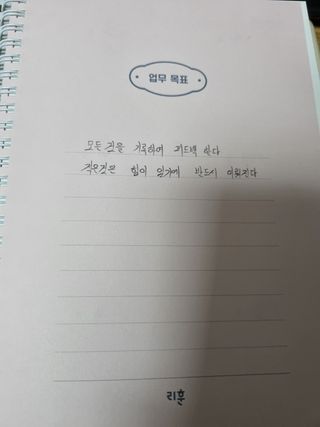 업무 목표
모든 것을 기록하여 피드백 한다
적은것은 힘이 있기에 반드시 이뤄진다
리훈